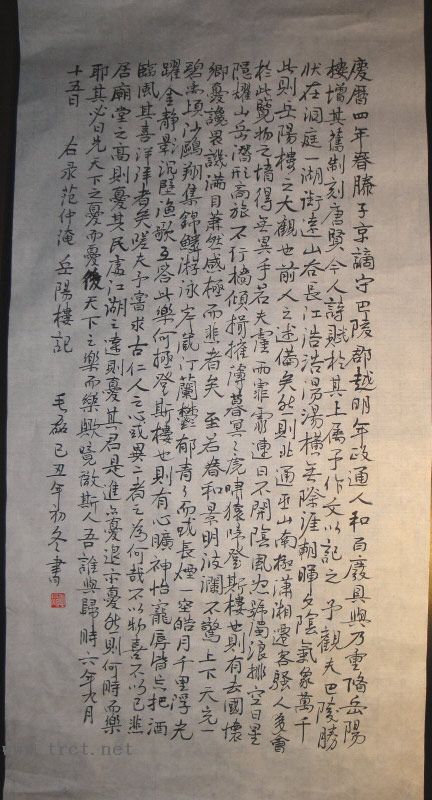 慶曆四年春滕子京謫守巴陵郡越明年政通人和百廢具興乃重修岳陽
樓增其舊制刻唐賢今人詩賦於其上屬予作文以記之予觀夫巴陵勝
狀在洞庭一湖銜遠山吞長江浩浩湯湯橫無際涯朝暉夕陰氣象萬千
此則岳陽樓之大觀也前人之述備矣然則北通巫山南極瀟湘遷客騷人多會
於此覽物之情得無異乎若夫霪雨霏霏連日不開陰風怒號濁浪排空日星
隱耀山岳潛形商旅不行檣傾楫摧薄暮冥々虎嘯猿啼登斯樓也則有去國懷
鄉憂讒畏譏滿目蕭然感極而悲者矣 至若春和景明波瀾不驚上下天光一
碧萬頃沙鷗翔集錦鱗游泳岸芷汀蘭鬱郁青々而或長煙一空皓月千里浮光
躍金靜影沉璧漁歌互答此樂何極登斯樓也則有心曠神怡寵辱皆忘把酒
臨風其喜洋洋者矣嗟夫予嘗求古仁人之心或異二者之為何哉不以物喜不以己悲
居廟堂之高則憂其民處江湖之遠則憂其君是進亦憂退亦憂然則何時而樂
耶其必曰先天下之憂而憂後天下之樂而樂歟噫微斯人吾誰與歸時六年九月
十五日 右录范仲淹岳陽樓記 毛磊己丑年初冬書
www.trct.net